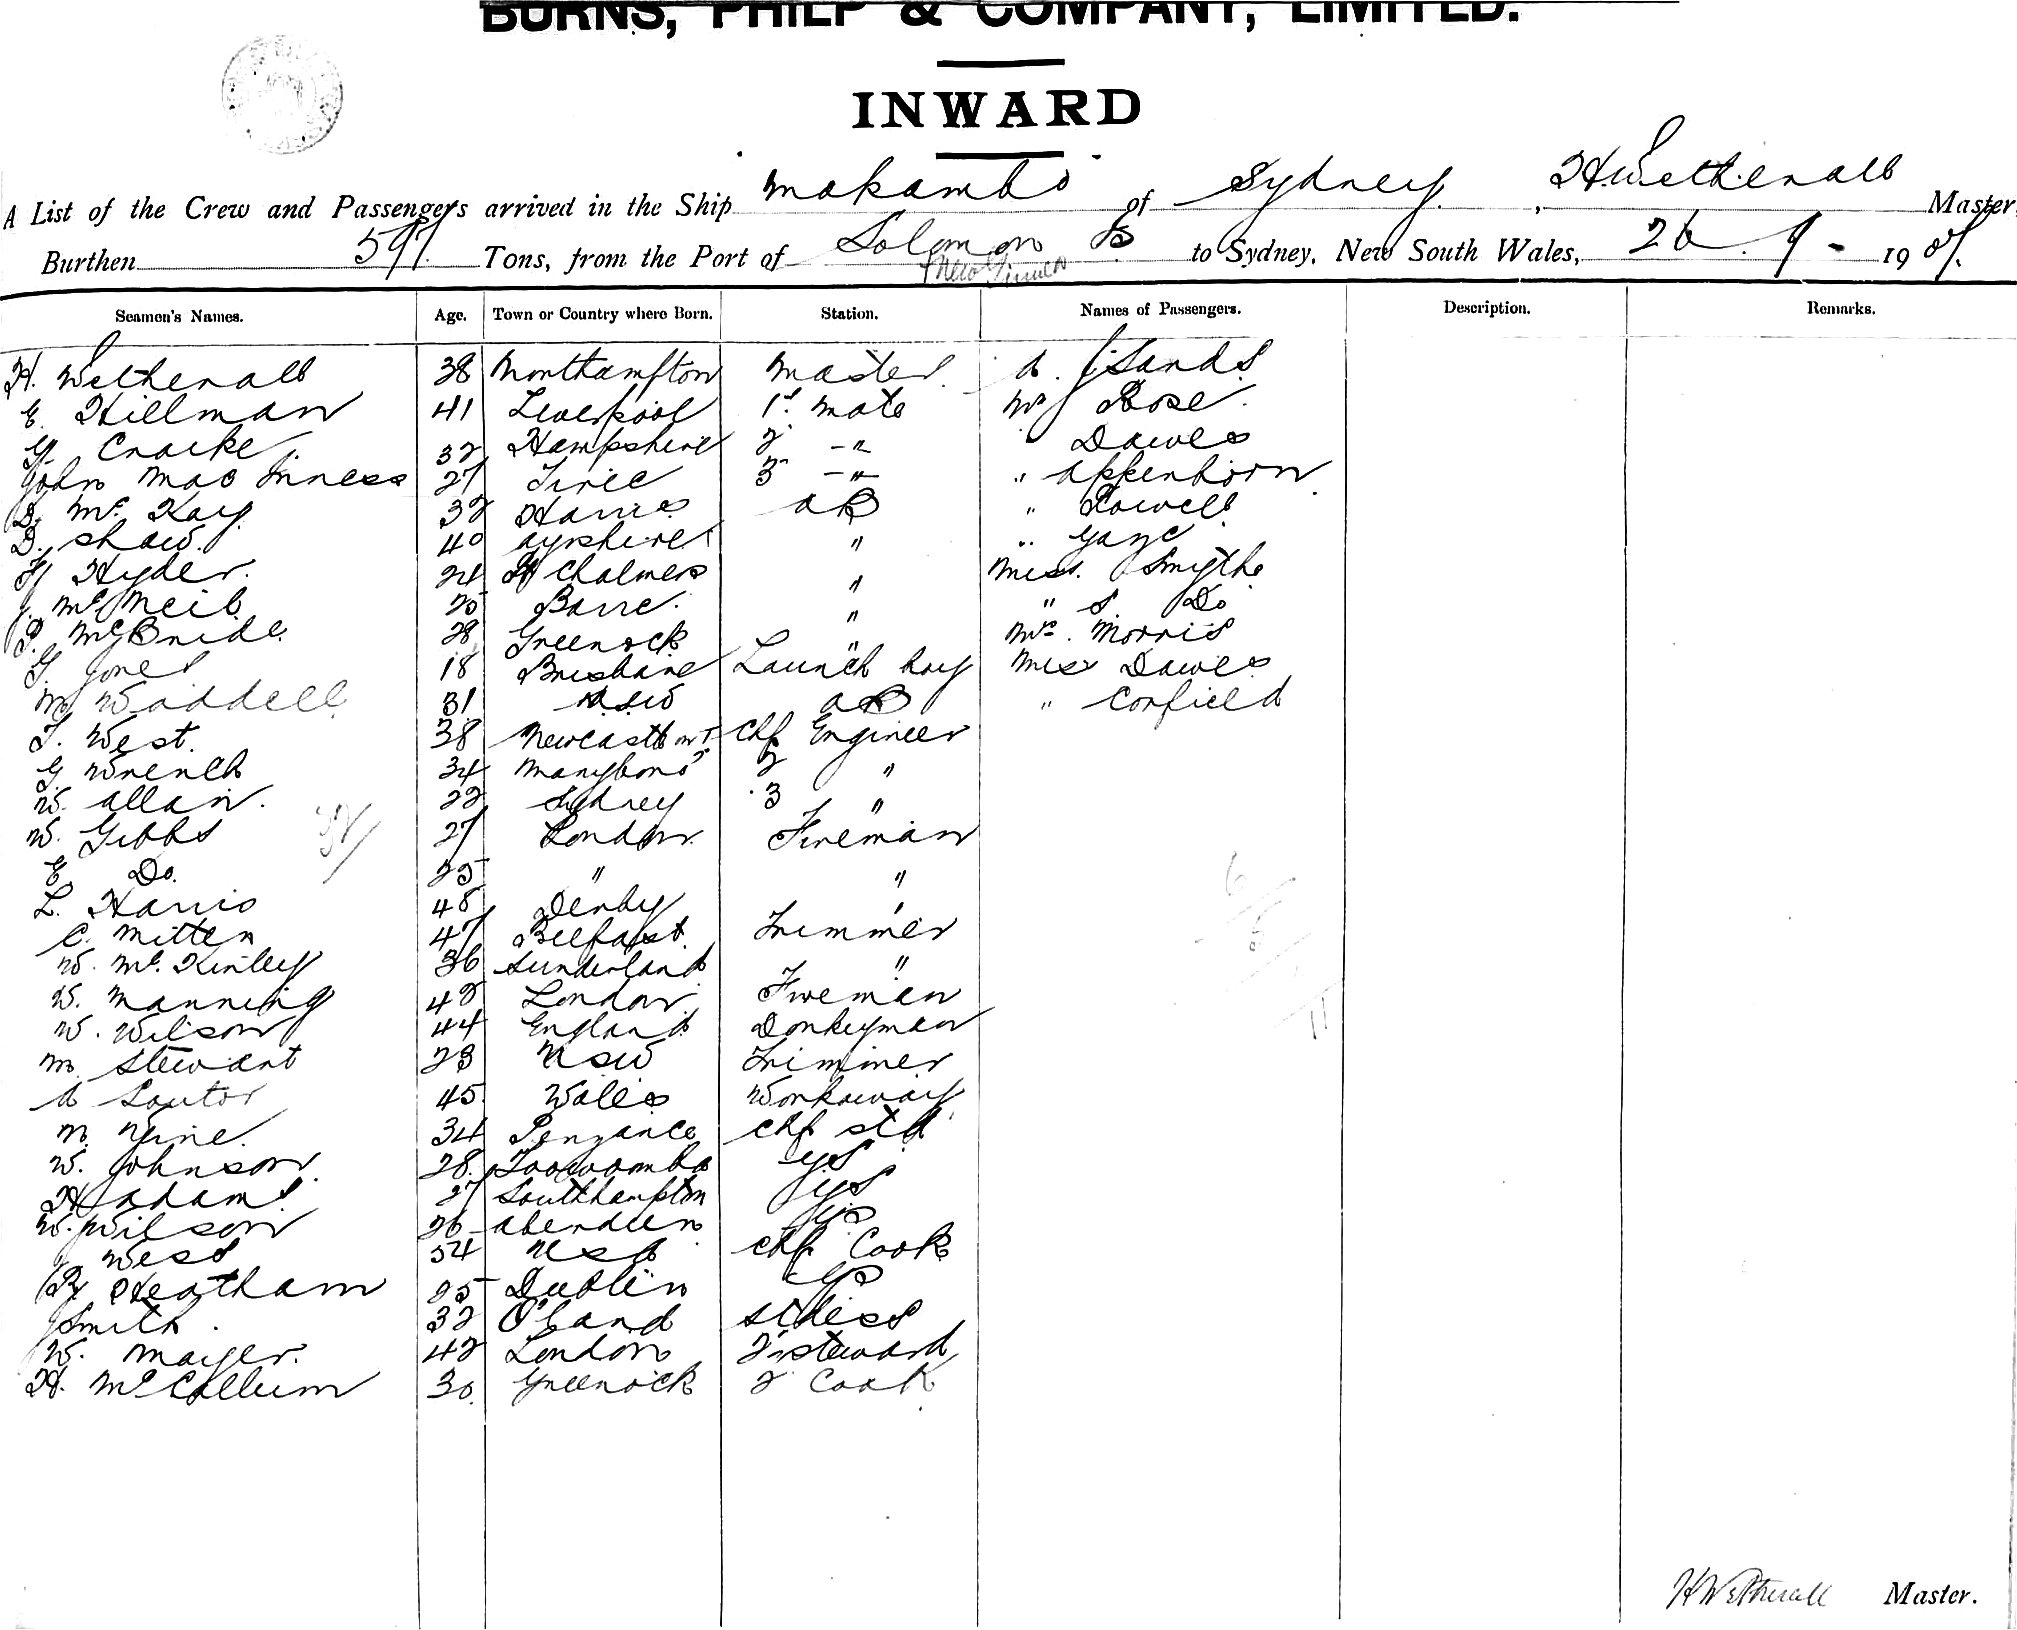 BURNS, PHILP & COMPANY, LIMITED.
INWARD
A List of the Crew and Passengers arrived in the Ship Makambo of Sydney, H. Wetherall Master,
Burthen 597 Tons, from the Port of Solomon Is to Sydney, New South Wales, 26. 9 - 1907.
+ New Guinea
Seamen's Names. Age. Town or Country where Born. Station. Names of Passengers. Description. Remarks.
H. Wetherall 38 Northampton Master A. Sands
E. Hillman 41 Liverpool 1st Mate Mr Rose
G. Cracke 32 Hampshire 2 -"- " Dawes
John MacInness 27 Tiree 3 -"- " Appenborn
D. McKay 32 Harris AB " Rowell
D. Shaw 40 Ayrshire " " Gaye
Hyder. 24 Pt Chalmers " Miss. Smythe
J. McNeil 25 Barre. " " S Do
P. McBride 28 Greenock " Mrs. Morris
G. Jones 18 Brisbane Launch boy Miss Dawes
M Waddell 31 NSW AB " Corfield
T. West. 38 Newcastle on T. Chf Engineer
G Wrench 34 Maryboro' 2 "
W. Allan. 22 Sydney 3 "
W. Gibbs 27 London Fireman
E Do. 25 " "
L. Harris 48 Derby "
C. Mitten 47 Belfast Trimmer
W. McKinley 36 Sunderland "
W. Manning 42 London Fireman
W. Wilson 44 England Donkeyman
M Stewart 23 NSW Trimmer
A Soutor 45 Wales Workaway
M. Hine. 34 Penzance Chf Std
W. Johnson 28. Toowoomba GS
H Adams 27 Southhampton GS
W. Wilson 26 Aberdeen GS
J West 54 Chf Cook
R Heatham 25 Dublin GS
J Smith. 32 Q'land Stdess
W. Mayer. 42 London 2nd Steward
H. McCallum 30. Greenock 2 Cook
6
5
11
H Wetherall Master.